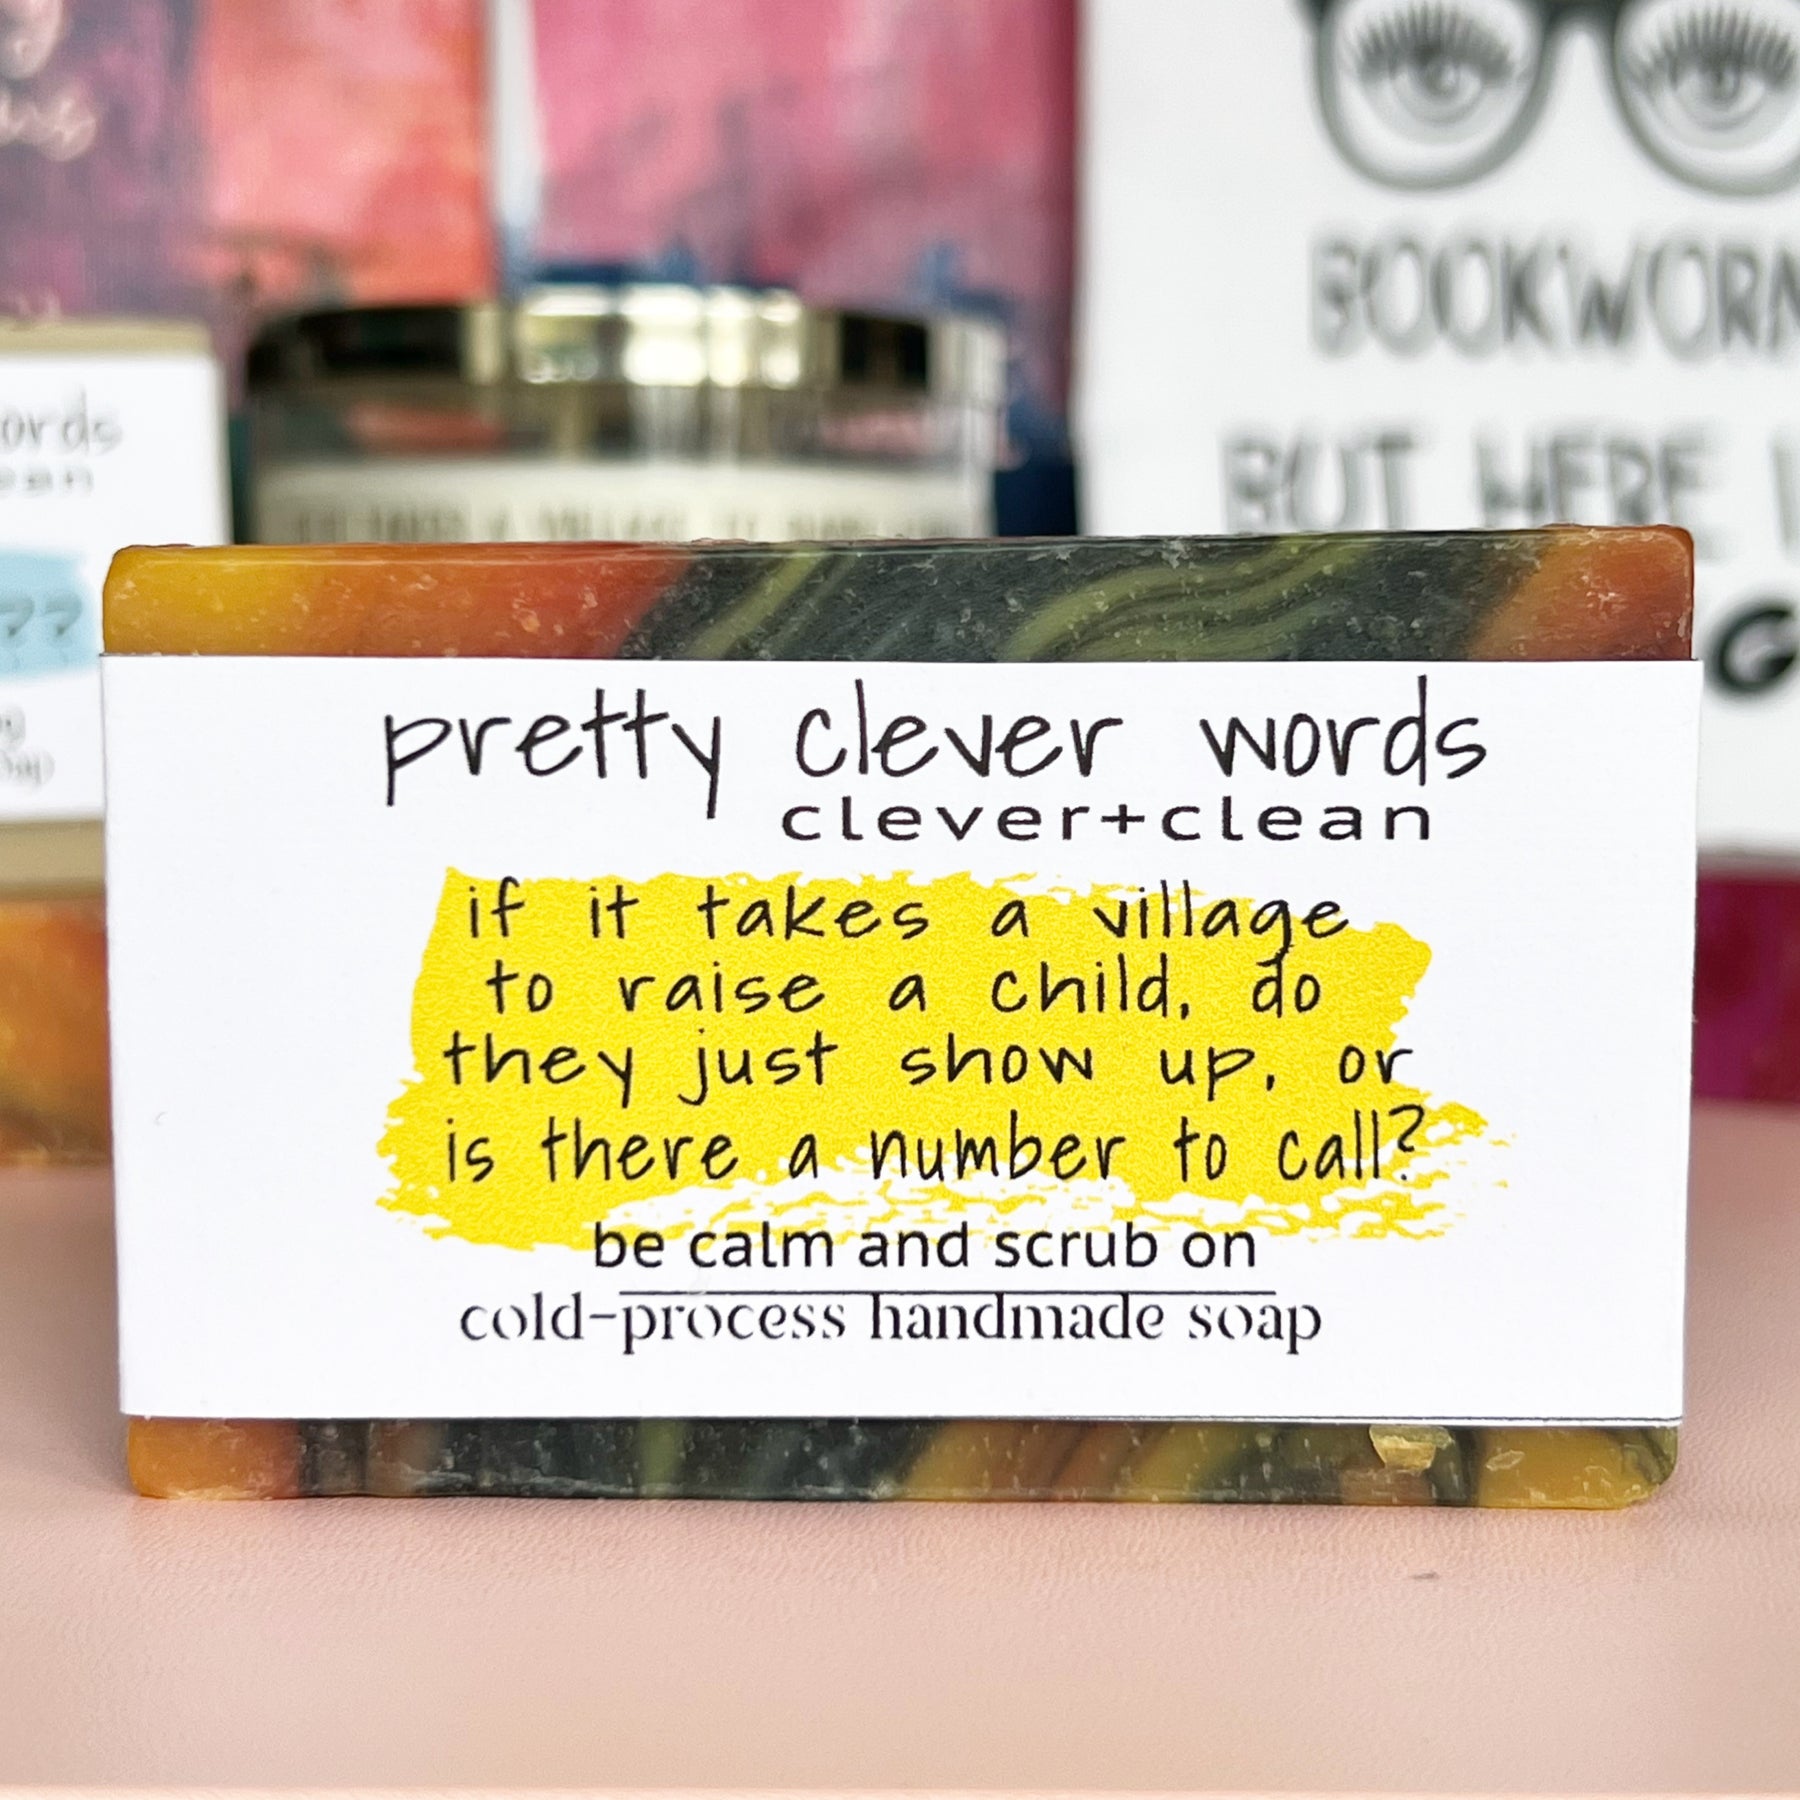 BOOKWORM
BUT HERE
ords
ean
pretty clever words
clever+clean
if it takes a village
to raise a child, do
they just show up, or
is there a number to call?
be calm and scrub on
cold-process handmade soap